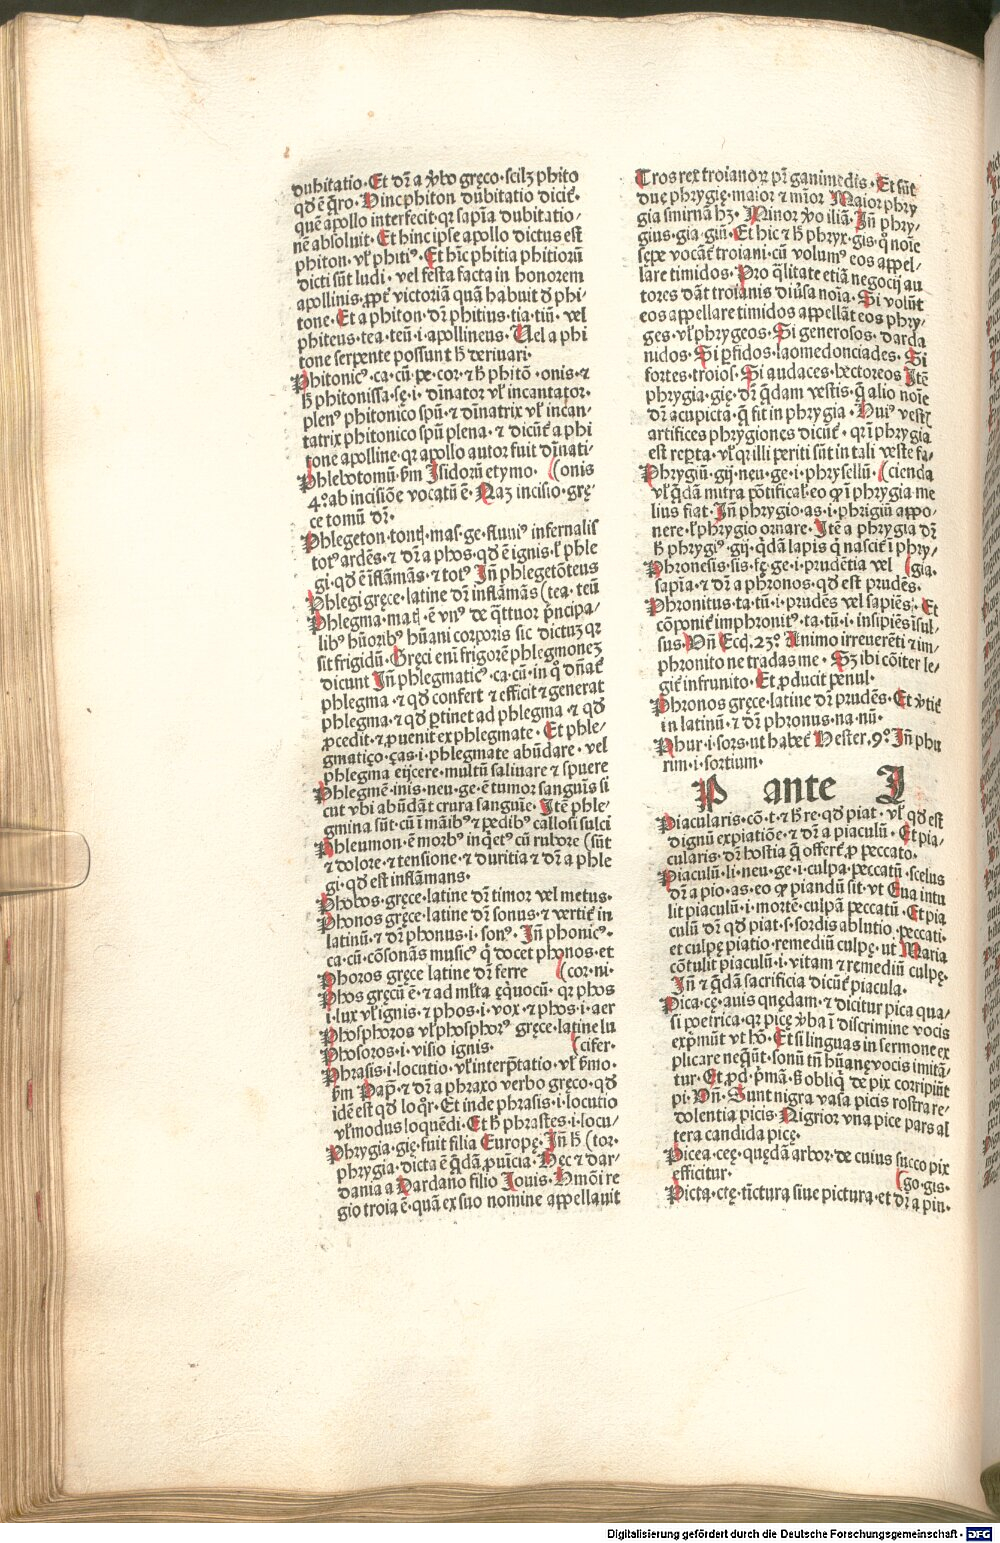 dubitatio. Et dr̄ a v̾bo gręco. scilꝫ phito
qđ ē q̄ro. Hinc phiton dubitatio diciť.
quē apollo interfecit. qꝛ sapīa dubitatio/
nē absoluit. Et hinc ipse apollo dictus est
phiton. vƚ phitiꝰ. Et hīc phitia phitioꝝ
dicti sūt ludi. vel festa facta in honorem
apollinis. ꝓpť victoriā quā habuit đ phi/
tone. Et a phiton. dr̄ phitius. tia. tiū. vel
phiteus. tea. teū. i. apollineus. Uel a phi
tone serpente possunt ħ deriuari.
Phitonicꝰ. ca. cū. pe. cor. ⁊ ħ phitō. onis. ⁊
ħ phitonissa. sę. i. diuinator vƚ incantator.
plenꝰ phitonico spū. ⁊ diuinatrix vƚ incan/
tatrix phitonico spū plena. ⁊ dicūť a phi
tone apolline. qꝛ apollo autor fuit diuinati/
Phlebotomū. ẜm Isidorū etymo. (onis
4.° ab incisiōe vocatū ē. Naꝫ incisio. grę/
ce tomū dr̄.
Phlegeton. tontꝭ. mas. ge. fluuiꝰ infernalis
totꝰ ardēs. ⁊ dr̄ a phos. qđ ē ignis. ⁊ phle
gi. qđ ē īflāmās. ⁊ totꝰ. Iñ phlegetōteus
Phlegi gręce. latine dr̄ inflāmās (tea. teū
Phlegma. matꝭ. ē vnꝰ de q̄ttuor p̄ncipa/
libꝰ hūoribꝰ hūani corporis sic dictuꝫ qꝛ
sit frigidū. Gręci enī frigorē phlegmoneꝫ
dicunt Iñ phlegmaticꝰ. ca. cū. in q̊ dn̄ať
phlegma. ⁊ qđ confert ⁊ efficit ⁊ generat
phlegma. ⁊ qđ ꝑtinet ad phlegma. ⁊ qđ
ꝓcedit. ⁊ ꝓuenit ex phlegmate. Et phle/
gmatiço. ças. i. phlegmate abūdare. vel
phlegma eijcere. multū saliuare ⁊ spuere
Phlegmē. inis. neu. ge. ē tumor sanguīs si
cut vbi abūdāt crura sanguīe. Itē phle/
gmina sūt. cū ī māibꝰ ⁊ pedibꝰ callosi sulci
Phleumon. ē morbꝰ inq̇etꝰ cū rubore (sūt
⁊ dolore. ⁊ tensione. ⁊ duritia ⁊ dr̄ a phle
gi. qđ est inflāmans.
Phobos. gręce. latine dr̄ timor vel metus.
Phonos gręce. latine dr̄ sonus. ⁊ vertiť in
latinū. ⁊ dr̄ phonus. i. sonꝰ. Iñ phonicꝰ.
ca. cū. cōsonās musicꝰ q̇ docet phonos. et
Phoros gręce latine dr̄ ferre (cor. ni.
Phos gręcū ē. ⁊ ad ml̄ta ęquocū. qꝛ phos
i. lux vƚ ignis. ⁊ phos. i. vox. ⁊ phos. i. aer
Phosphoros vƚ phosphorꝰ gręce. latine lu
Phosoros. i. visio ignis. (cifer.
Phrasis. i. locutio. vƚ interp̄tatio. vƚ ẜmo.
ẜm Papꝭ. ⁊ dr̄ a phraxo verbo gręco. qđ
idē est qđ loq̊r. Et inde phrasis. i. locutio
vƚ modus loquēdi. Et ħ phrastes. i. locu/
Phrygia. gię. fuit filia Europę. Iñ ħ (tor.
phrygia. dicta ē q̄dā ꝓuīcia. Hęc ⁊ dar/
dania a Dardano filio Iouis. Hmōi re
gio troia ē. quā ex suo nomine appellauit
Tros rex troianoꝝ pr̄ ganimedis. Et sūt
duę phrygię. maior ⁊ mīor Maior phry
gia smirnā hꝫ. Minor v̾o iliā. Iñ phry/
gius. gia. giū. Et hic ⁊ ħ phryx. gis. q̊ noīe
sępe vocāť troiani. cū volumꝰ eos appel/
lare timidos. Pro q̄litate etiā negocij au
tores dāt troianis diuꝭsa noīa. Si volūt
eos appellare timidos appellāt eos phry/
ges. vƚ phrygeos. Si generosos. darda
nidos. Si ꝑfidos. laomedonciades. Si
fortes. troios. Si audaces. hectoreos Itē
phrygia. gię. dr̄ q̄dam vestis. q̄ alio noīe
dr̄ acupicta. q̄ fit in phrygia. Huiꝰ vestꝭ
artifices phrygiones dicūť. qꝛ ī phrygia
est reꝑta. vƚ qꝛ illi periti sūt in tali veste fa/
Phrygiū. gij. neu. ge. i. phrysellū. (cienda
vƚ q̄dā mitra pōtificaƚ. eo ꝙ ī phrygia me
lius fiat. Iñ phrygio. as. i. phrigiū appo/
nere. ƚ phrygio ornare. Itē a phrygia dr̄
ħ phrygiꝰ. gij. q̇dā lapis q̇ nasciť ī phry/
Phronesis. sis. fę. ge. i. prudētia vel (gia.
sapīa. ⁊ dr̄ a phronos. qđ est prudēs.
Phronitus. ta. tū. i. prudēs vel sapiēs. Et
cōponiť imphronitꝰ. ta. tū. i. insipiēs īsul/
sus. Vn̄ Ecc̄i. 23.° Animo irreuerēti ⁊ im/
phronito ne tradas me. Sꝫ ibi cōiter le/
giť infrunito. Et ꝓducit penul.
Phronos gręce. latine dr̄ prudēs. Et v̾tiť
in latinū. ⁊ dr̄ phronus. na. nū.
Phur. i. sors. vt habeť Hester. 9.° Iñ phu
rim. i. sortium.
P ante I
Piacularis. cō. t. ⁊ ħ re. qđ piat. vƚ qđ est
dignū expiatiōe. ⁊ dr̄ a piaculū. Et pia/
cularis. dr̄ hostia q̄ offerť. ꝓ peccato.
Piaculū. li. neu. ge. i. culpa. peccatū. scelus
dr̄ a pio. as. eo ꝙ piandū sit. vt Eua intu
lit piaculū. i. mortē. culpā peccatū. Et pia
culū dr̄ qđ piat. s. sordis ablutio. peccati.
et culpę piatio. remediū culpę. ut Maria
cōtulit piaculū. i. vitam ⁊ remediū culpę.
Iñ ⁊ q̄dā sacrificia dicūť piacula.
Pica. cę. auis quędam. ⁊ dicitur pica qua/
si poetrica. qꝛ picę v̾ba ī discrimine vocis
exp̄mūt vt hō. Et si linguas in sermone ex
plicare neq̄ūt. sonū tn̄ hūanę vocis imitā/
tur. Et ꝓđ. p̄mā. ẞ obliq̇ de pix corripiūt
pi. Vn̄. Sunt nigra vasa picis rostra re/
dolentia picis. Nigrior vna pice pars al
tera candida picę.
Picea. ceę. quędā arbor. de cuius succo pix
efficitur. (go. gis.
Picta. ctę. tīctura siue pictura. et dr̄ a pin.
Digitalisierung gefördert durch die Deutsche Forschungsgemeinschaft - DFG